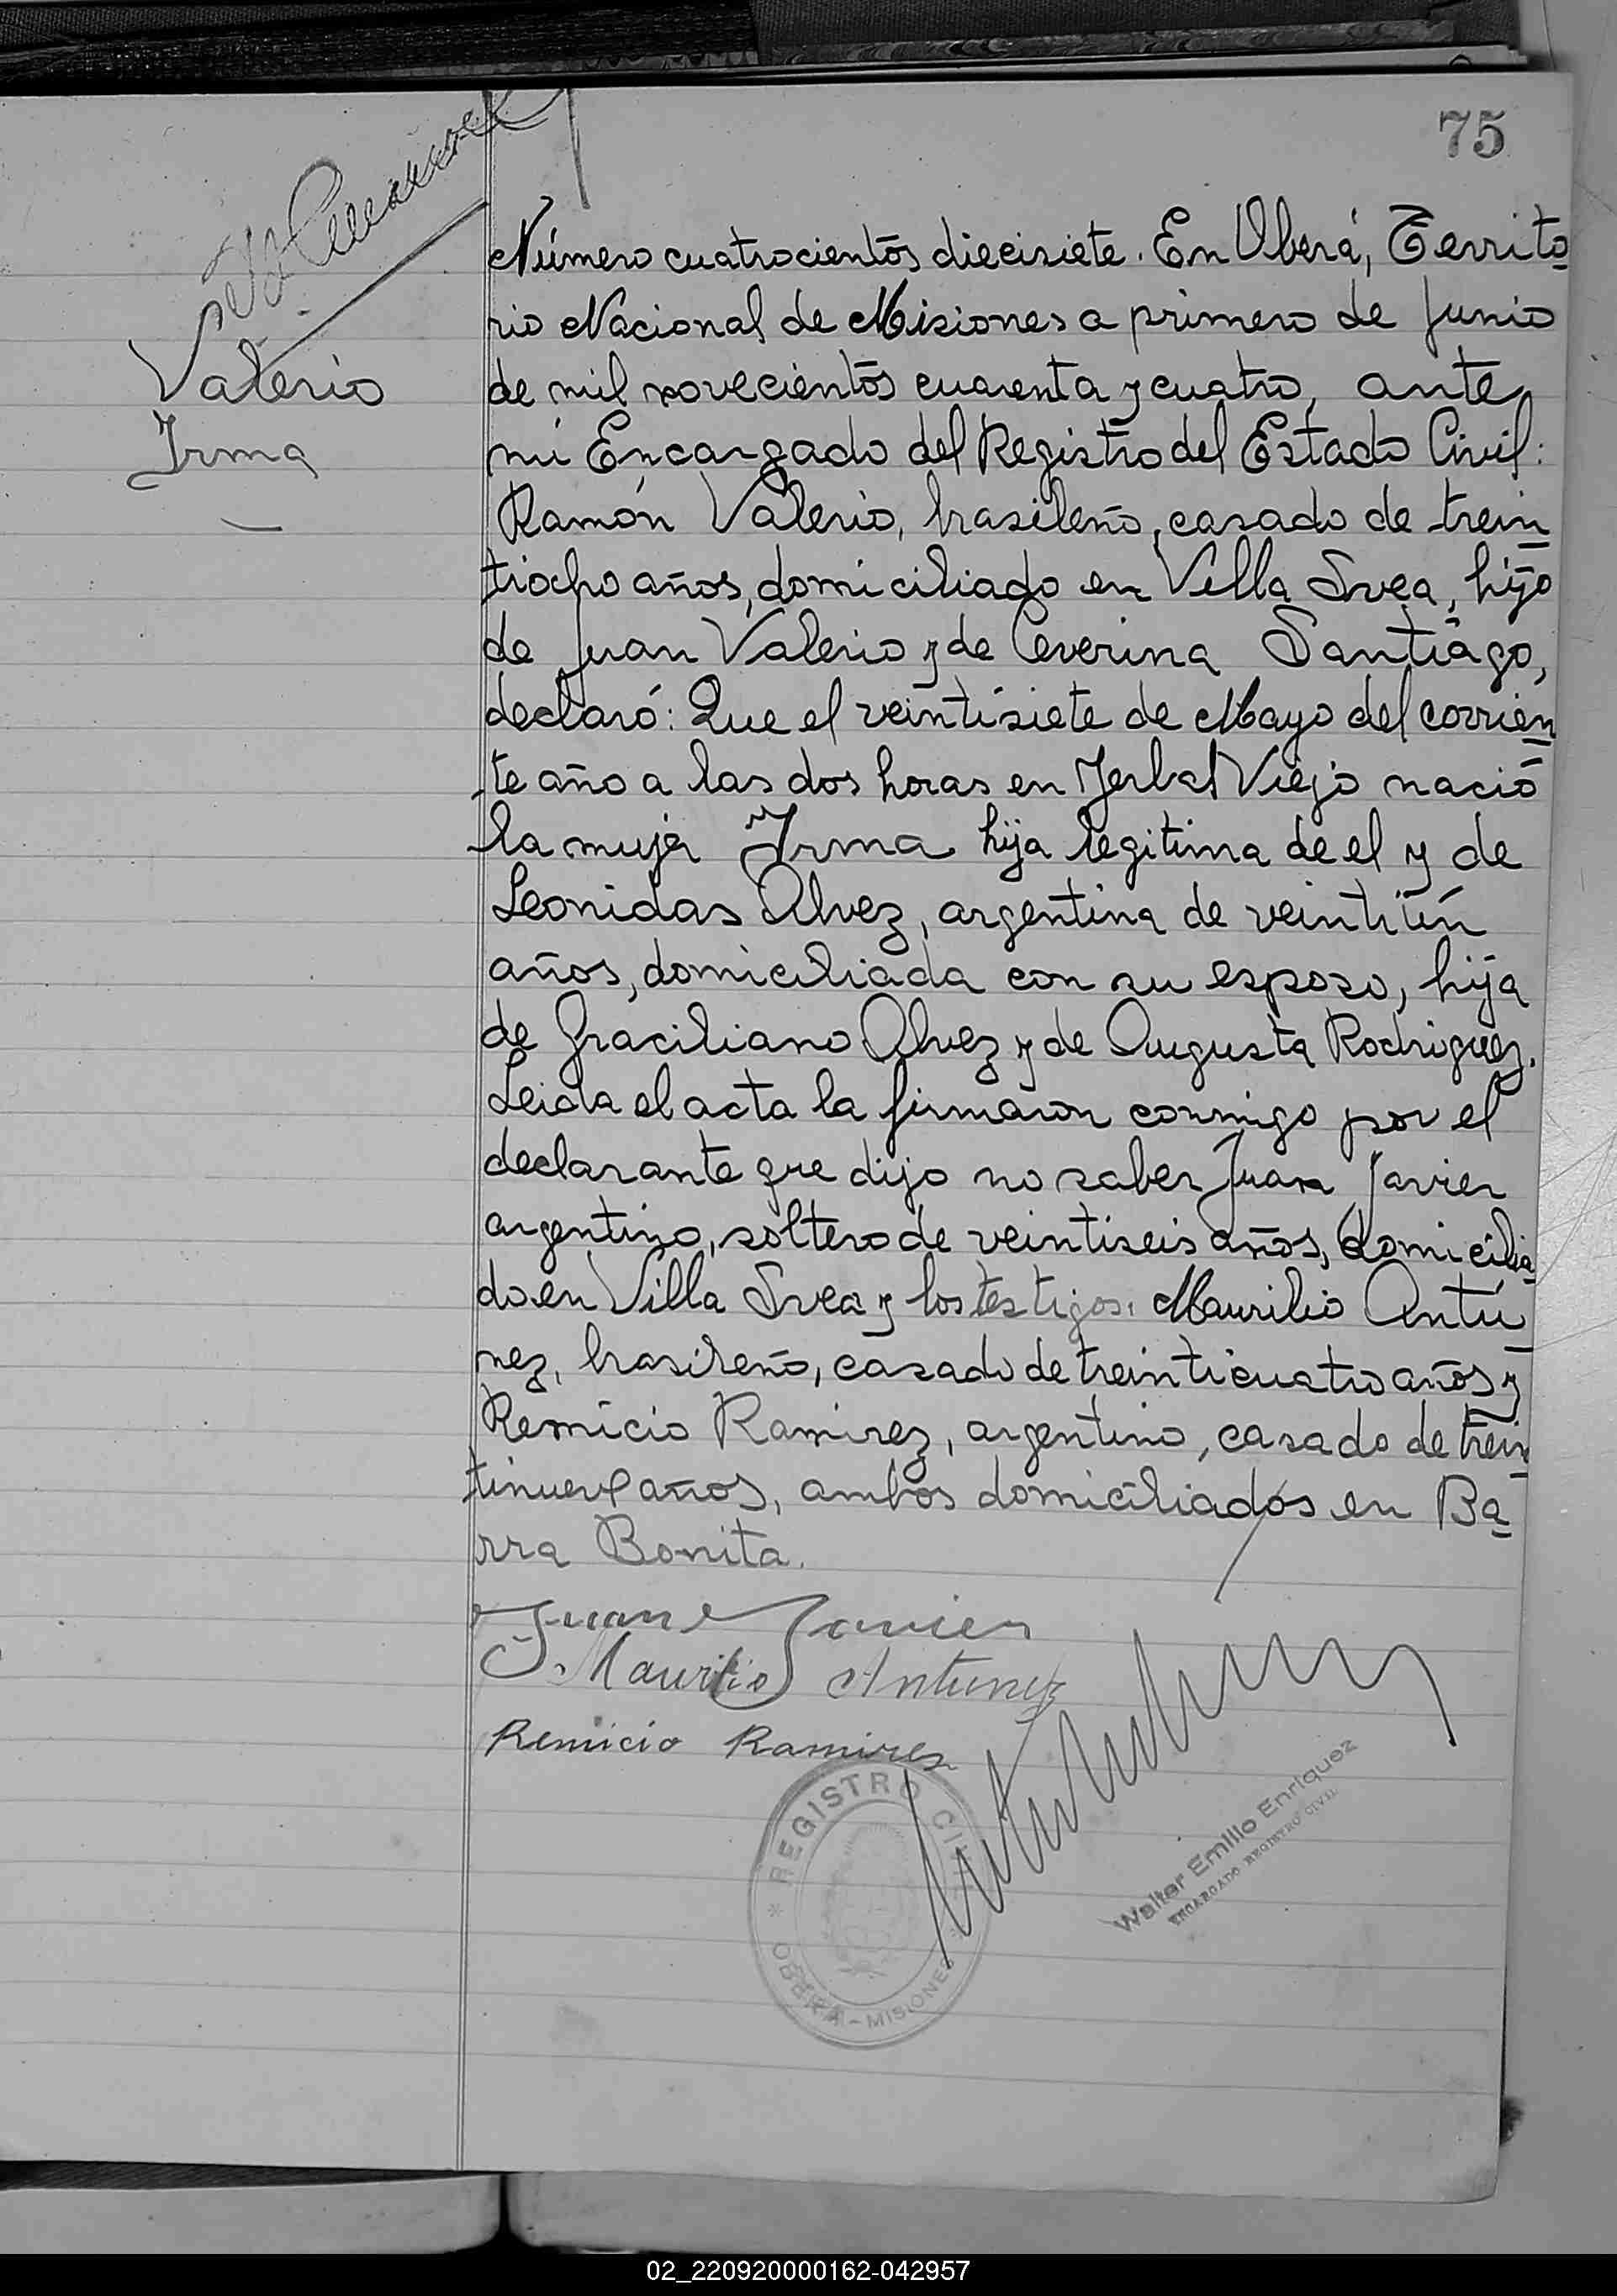 75
Valerio
Irma
Número cuatrocientos diecisiete. En Oberá, Territo
rio Nacional de Misiones a primero de Junio
de mil novecientos cuarenta y cuatro, ante
mi Encargado del Registro del Estado Civil:
Ramón Valerio, brasileño, casado de trein
tiocho años, domiciliado en Villa Svea, hijo
de Juan Valerio y de Ceverina Santiago,
declaró: Que el veintisiete de Mayo del corrien
te año a las dos horas en Yerbal Viejo nació
la mujer Irma hija legitima de el y de
Leonidas Alvez, argentina de veintiún
años, domiciliada con su esposo, hija
de Graciliano Alvez y de Augusta Rodriguez.
Leida el acta la firmaron conmigo por el
declarante que dijo no saber Juan Javier
argentino, soltero de veintiseis años, domicilia
do en Villa Svea y los testigos: Maurilio Antú
nez, brasileño, casado de treinticuatro años y
Remicio Ramirez, argentino, casado de trein
tinueve años, ambos domiciliados en Ba
rra Bonita.
Juan Javier
Maurilio Antunez
Remicio Ramirez
REGISTRO CIVIL
OBERÁ - MISIONES
Walter Emilio Enriquez
ENCARGADO REGISTRO CIVIL
02_220920000162-042957